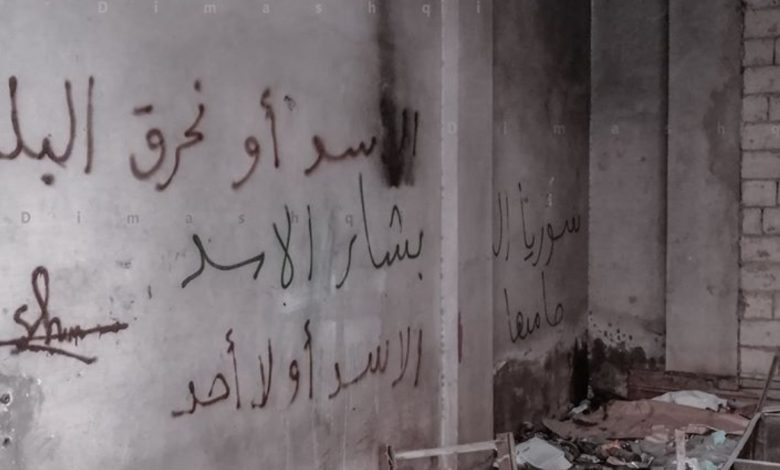 Dimashqi
الاسد أو نحرق البلد
Dimashqi
بشار الاسد
الاسد أو لا أحد
سوريا ال
حاميها